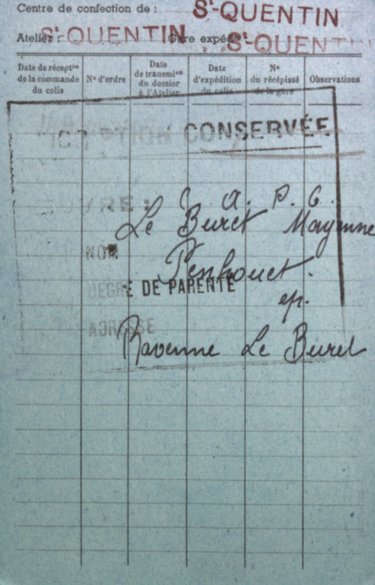 Centre de confection de : St-QUENTIN
Atelier : St-QUENTIN Gare expéd St-QUENT
Date de récept^on de la commande du colis
N° d'ordre
Date de transmi^on du dossier à l'Atelier
Date d'expédition du colis
N° du récépissé de la gare
Observations
CONSERVÉE
A. P. G.
Le Buret Mayenne
NOM
Penhouet.
DEGRÉ DE PARENTÉ
ep.
ADRESSE
Ravenne Le Buret